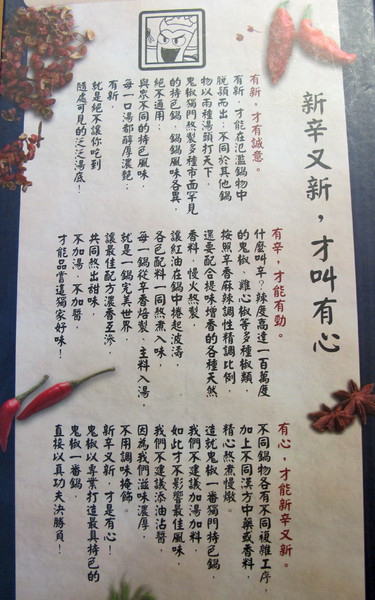 新辛又新，才叫有心
有新，才有誠意。
有新，才能在氾濫鍋物中
脫穎而出；不同於其他鍋
物以兩種湯頭打天下，
鬼椒獨門熬製多種市面罕見
的特色鍋，鍋鍋風味各異，
絕不通用；
與眾不同的特色風味，
每一口湯都醇厚濃郁；
有新，
就是絕不讓你吃到
隨處可見的泛泛湯底！
有辛，才能有勁。
什麼叫辛？辣度高達一百萬度
的鬼椒、雞心椒等多種椒類，
按照辛香麻辣調性精調比例，
還要配合提味增香的各種天然
香料，慢火熬製，
讓紅油在鍋中捲起波濤，
各色配料一同熬煮入味，
每一鍋從辛香焙製、主料入湯，
就是一鍋完美世界，
讓最佳配方濃香互滲，
共同熬出甜味，
不加湯、不加醬，
才能品嘗這獨家好味！
有心，才能新辛又新。
不同鍋物各有不同複雜工序，
加上不同漢方中藥或香料，
精心熬煮慢燉。
造就鬼椒一番獨門特色鍋，
我們不建議加湯加料，
如此才不影響最佳風味，
我們不建議添油沾醬，
因為我們滋味濃厚，
不用調味掩飾。
新辛又新，才是有心！
鬼椒以專業打造最具特色的
鬼椒一番鍋，
直接以真功夫決勝負！